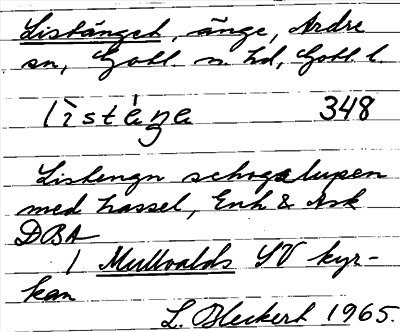 Listänget, änge, Ardre
sn, Gotl. n. hd, Gotl. l.
listęŋe 348
Listengn schogslupen
med hassel, Enh & Ask
DBA
1 Mullvalds SV kyr-
kan
L. Bleckert 1965.